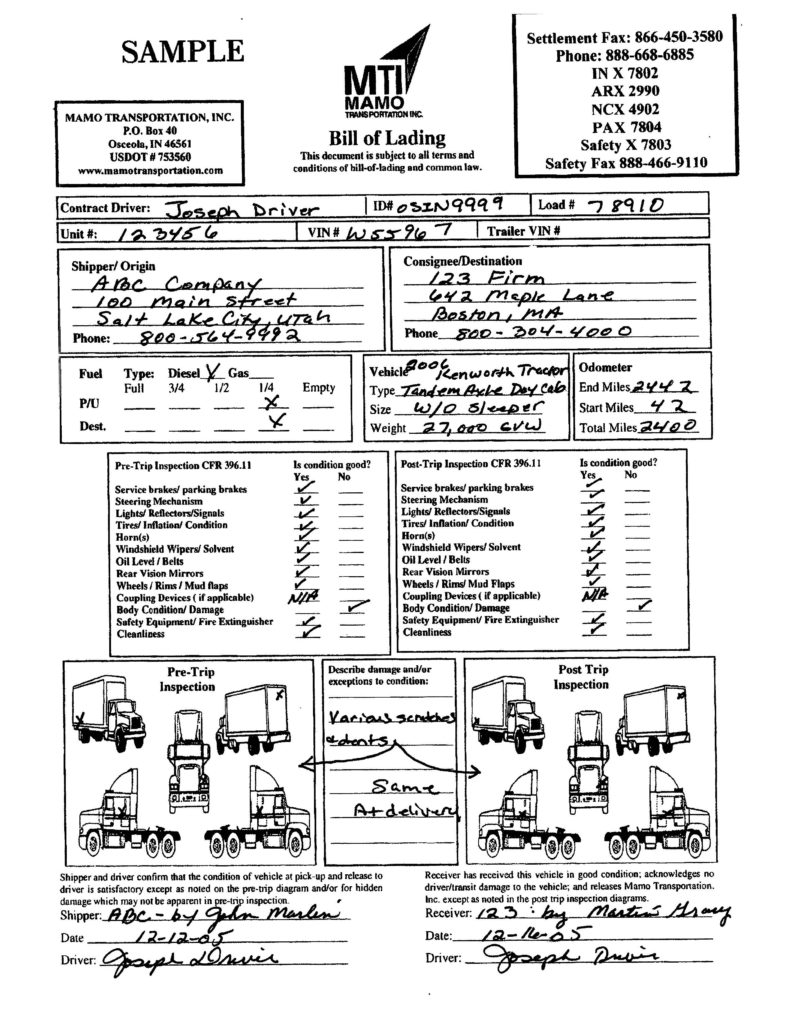 SAMPLE
MTI
MAMO
TRANSPORTATION INC.
Settlement Fax: 866-450-3580
Phone: 888-668-6885
IN X 7802
ARX 2990
NCX 4902
PAX 7804
Safety X 7803
Safety Fax 888-466-9110
MAMO TRANSPORTATION, INC.
P.O. Box 40
Osceola, IN 46561
USDOT # 753560
www.mamotransportation.com
Bill of Lading
This document is subject to all terms and
conditions of bill-of-lading and common law.
Contract Driver: Joseph Driver ID# OSIN9999 Load # 78910
Unit #: 123456 VIN # W55967 Trailer VIN #
Shipper/ Origin
ABC Company
100 Main Street
Salt Lake City, UTah
Phone: 800-564-9992
Consignee/Destination
123 Firm
642 Maple Lane
Boston, MA
Phone 800-304-4000
Fuel Type: Diesel Y Gas
Full 3/4 1/2 1/4 Empty
P/U X
Dest. X
Vehicle 2006 Kenworth Tractor
Type Tandem Axle Day Cab
Size W/O Sleeper
Weight 27,000 GVW
Odometer
End Miles 2442
Start Miles 42
Total Miles 2400
Pre-Trip Inspection CFR 396.11 Is condition good?
Yes No
Service brakes/ parking brakes ✓
Steering Mechanism ✓
Lights/ Reflectors/Signals ✓
Tires/ Inflation/ Condition ✓
Horn(s) ✓
Windshield Wipers/ Solvent ✓
Oil Level / Belts ✓
Rear Vision Mirrors ✓
Wheels / Rims/ Mud flaps ✓
Coupling Devices ( if applicable) N/A
Body Condition/ Damage ✓
Safety Equipment/ Fire Extinguisher ✓
Cleanliness ✓
Post-Trip Inspection CFR 396.11 Is condition good?
Yes No
Service brakes/ parking brakes ✓
Steering Mechanism ✓
Lights/ Reflectors/Signals ✓
Tires/ Inflation/ Condition ✓
Horn(s) ✓
Windshield Wipers/ Solvent ✓
Oil Level / Belts ✓
Rear Vision Mirrors ✓
Wheels / Rims/ Mud Flaps ✓
Coupling Devices ( if applicable) N/A
Body Condition/ Damage ✓
Safety Equipment/ Fire Extinguisher ✓
Cleanliness ✓
Pre-Trip
Inspection
Describe damage and/or
exceptions to condition:
Various scratches
& dents
Same
At delivery
Post Trip
Inspection
Shipper and driver confirm that the condition of vehicle at pick-up and release to
driver is satisfactory except as noted on the pre-trip diagram and/or for hidden
damage which may not be apparent in pre-trip inspection.
Shipper: ABC - by John Marlin
Date 12-12-05
Driver: Joseph Driver
Receiver has received this vehicle in good condition; acknowledges no
driver/transit damage to the vehicle; and releases Mamo Transportation.
Inc. except as noted in the post trip inspection diagrams.
Receiver: 123 : by Martin Gracy
Date: 12-16-05
Driver: Joseph Driver